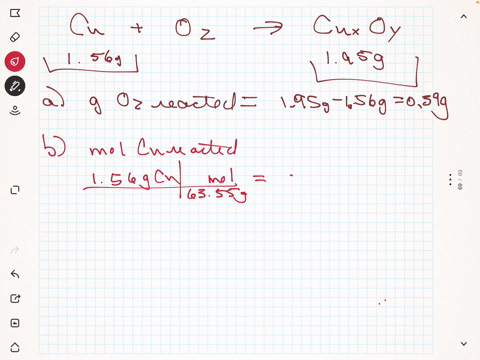 Cu + O2 → CuxOy
1.56g 1.95g
a) g O2 reacted = 1.95g - 1.56g = 0.39g
b) mol Cu reacted
1.56 g Cu | mol =
63.55g